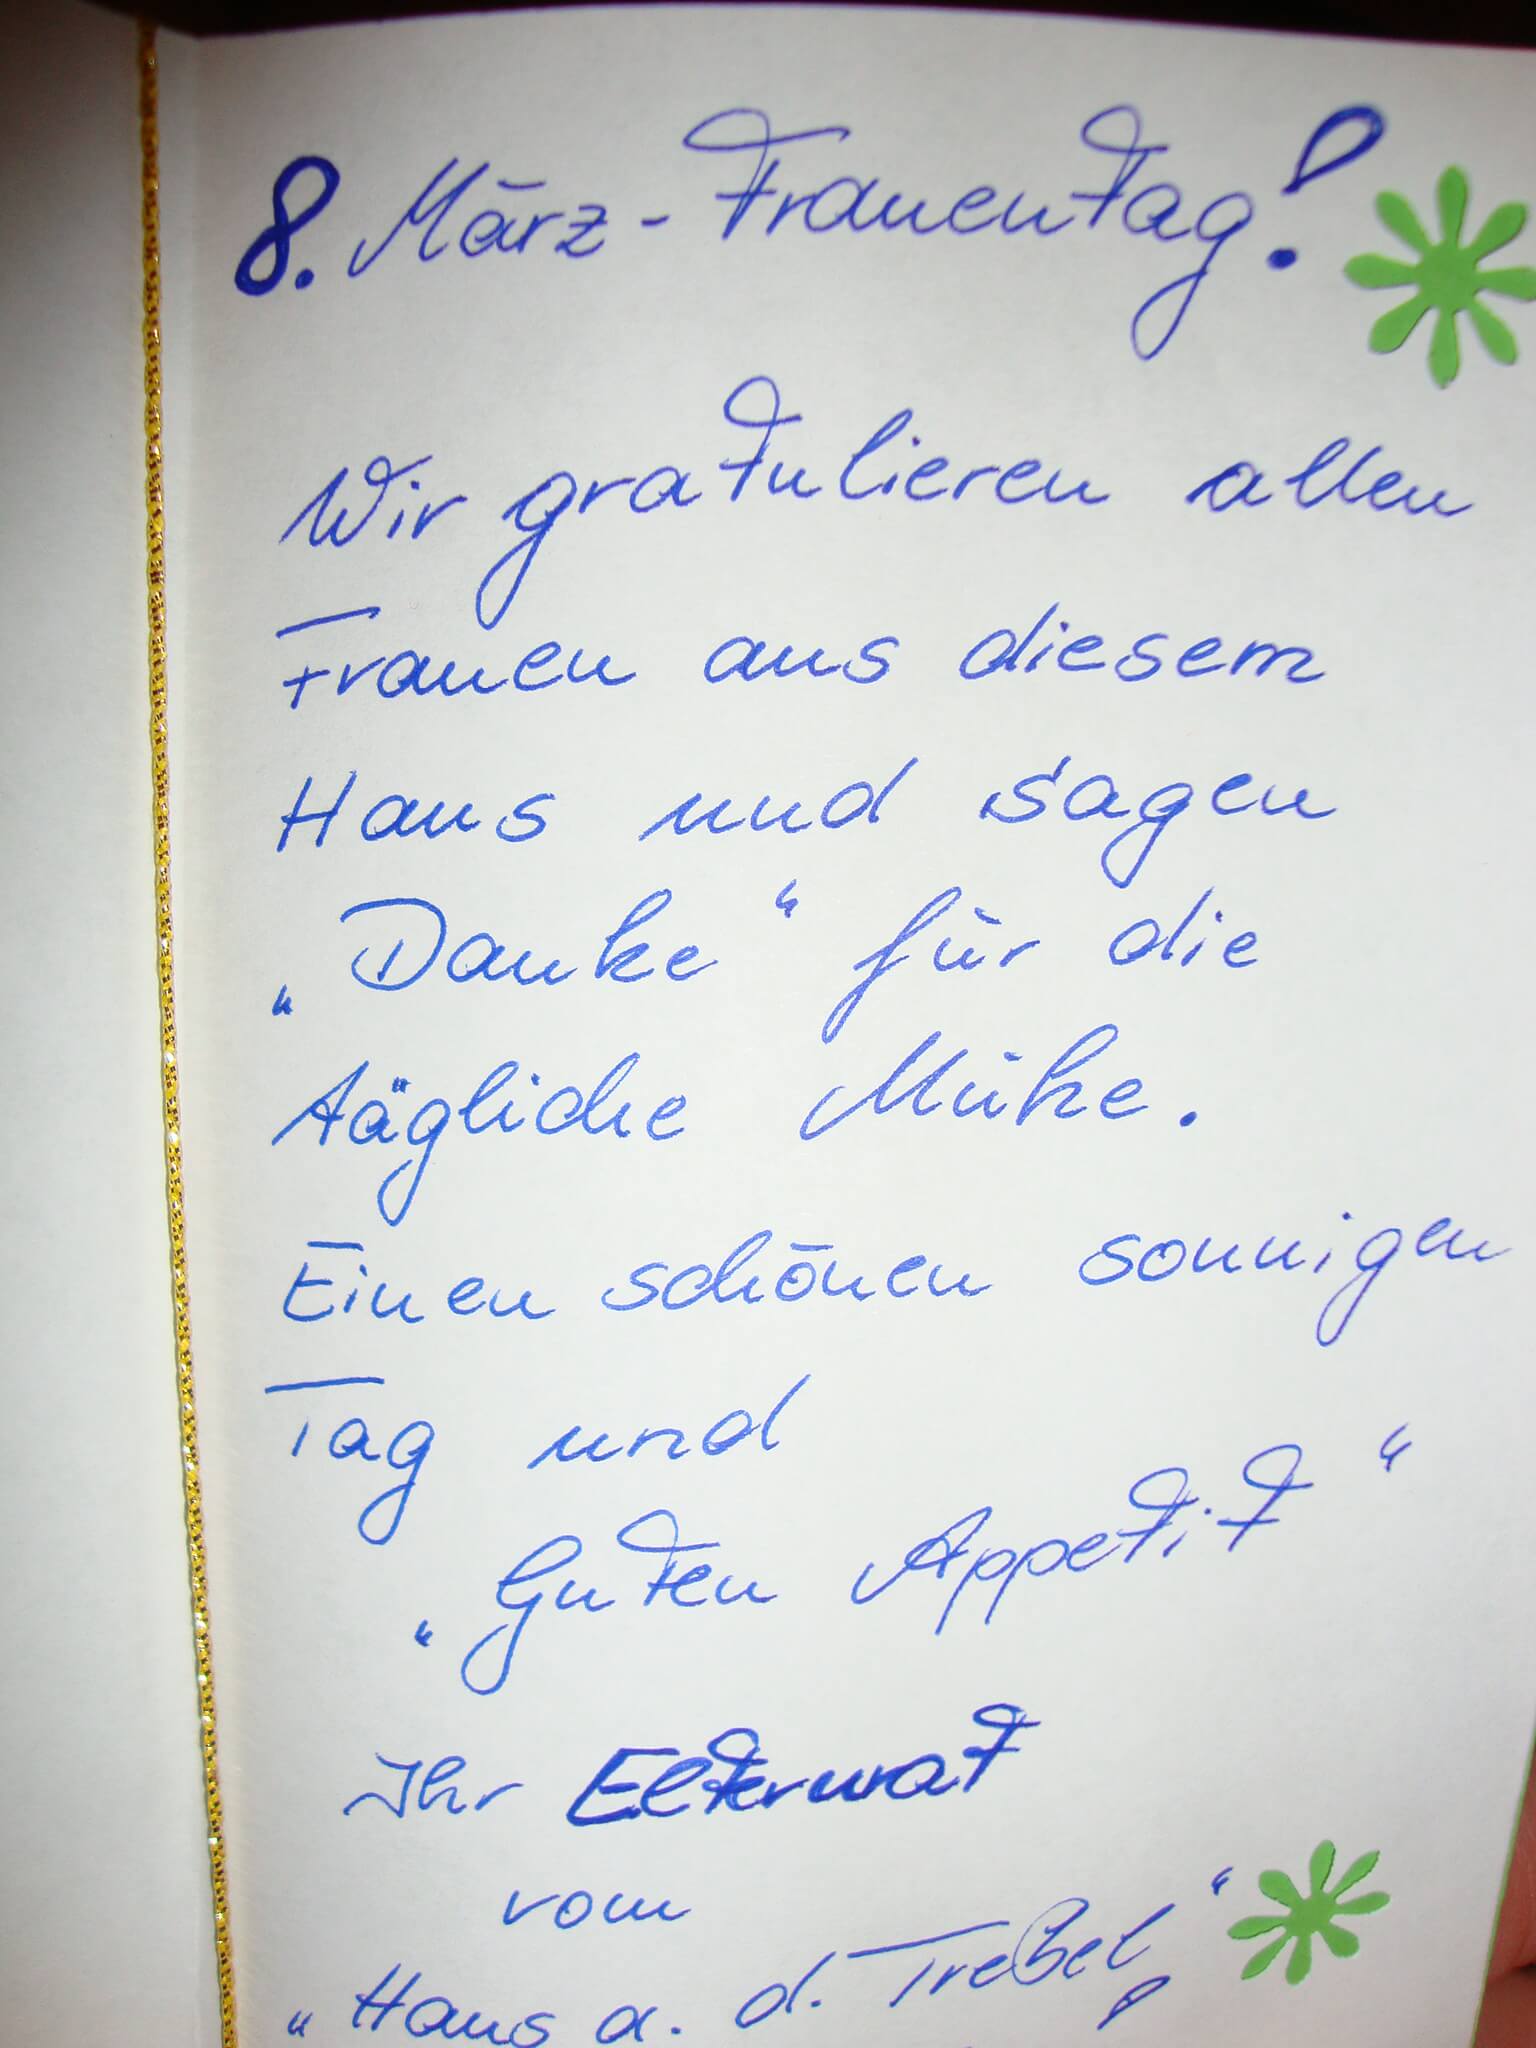 8. März - Frauentag!
Wir gratulieren allen
Frauen aus diesem
Haus und sagen
„Danke“ für die
tägliche Mühe.
Einen schönen sonnigen
Tag und
„Guten Appetit“
Ihr Elternrat
vom
„Haus a. d. Trebel“